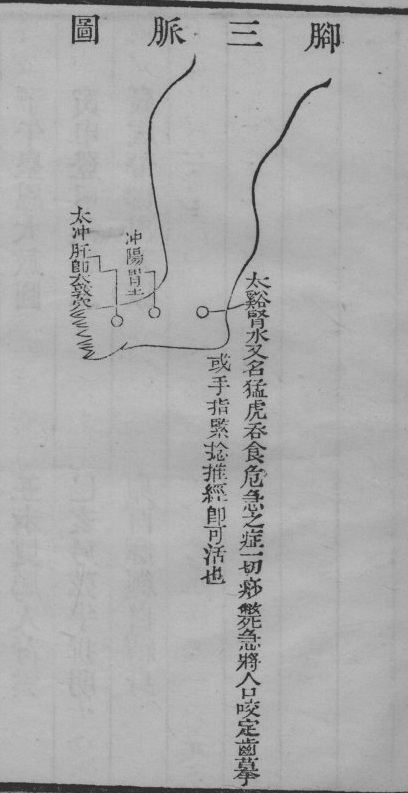 腳三脈圖
太谿腎水又名猛虎吞食危急之症一切痧斃死急將人口咬定齒摹
或手指緊捻推經即可活也
冲陽胃土
太冲肝即太敦穴